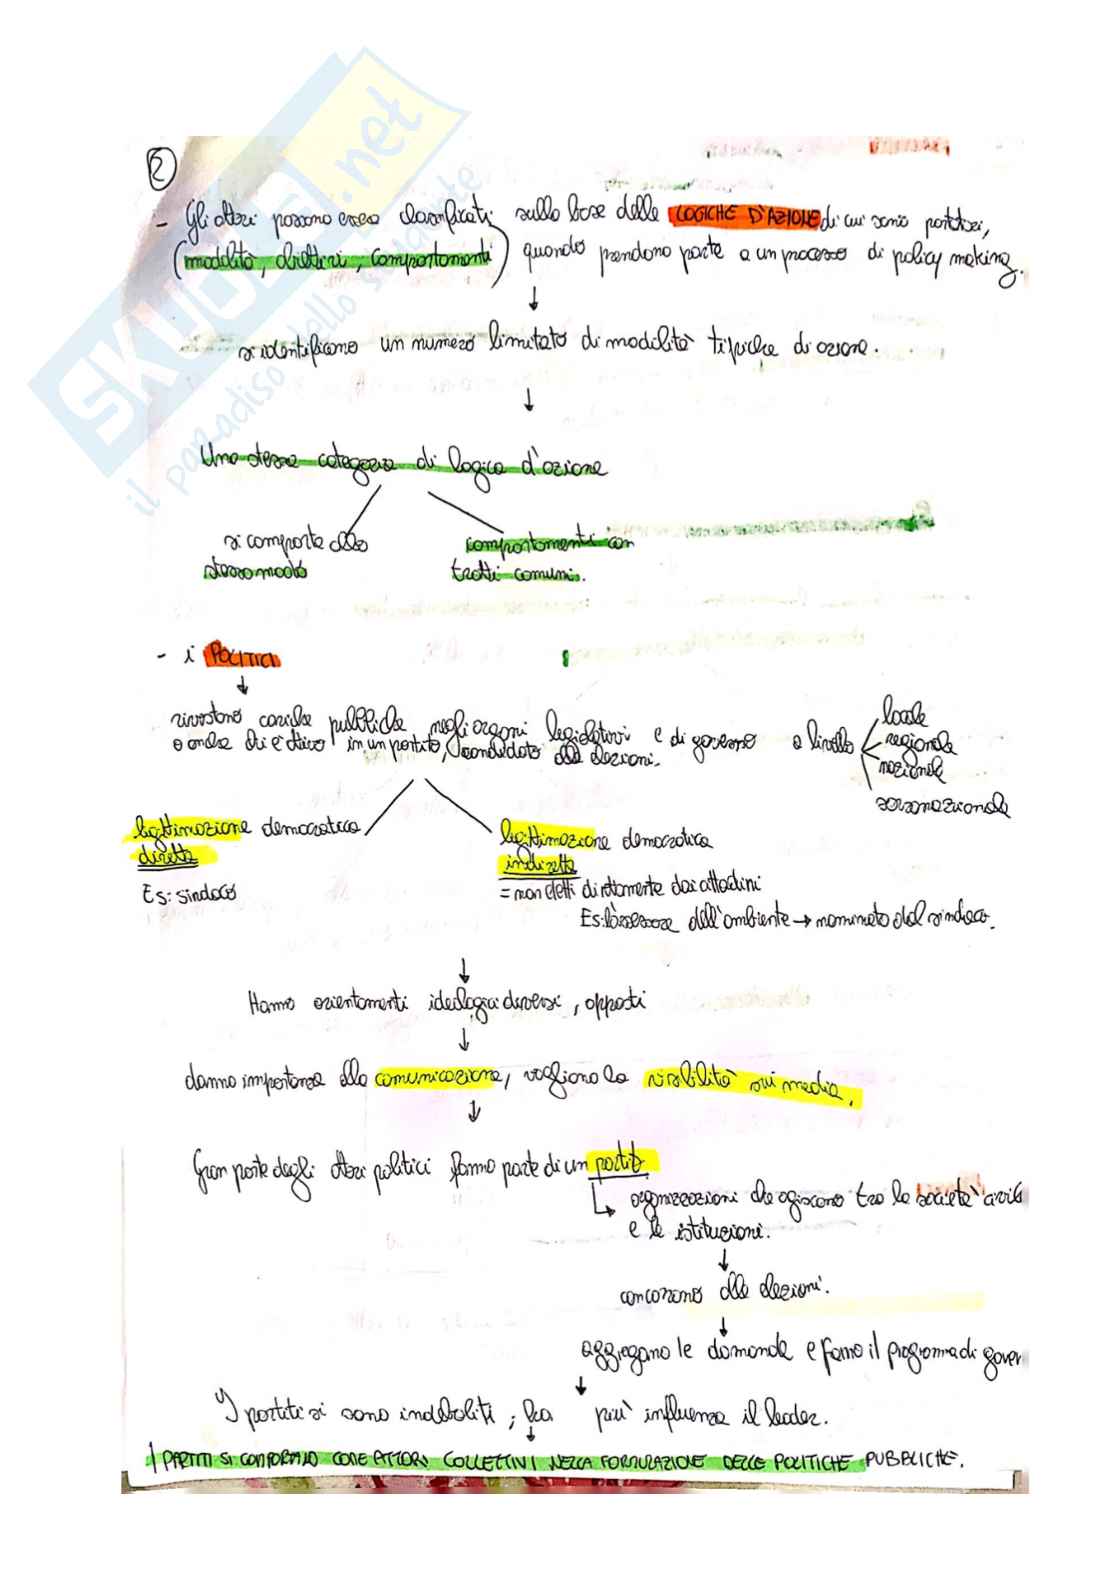 SKUOLA.net
il paradiso dello studente
2
- Gli attori possono essere classificati sulla base delle LOGICHE D'AZIONE di cui sono portatori,
(modalità, obiettivi, comportamenti) quando prendono parte a un processo di policy making.
↓
si identificano un numero limitato di modalità tipiche di azione.
↓
Una stessa categoria di logica d'azione
si comporta allo stesso modo
comportamenti con tratti comuni.
- i POLITICI
↓
rivestono cariche pubbliche negli organi legislativi e di governo a livello
o anche direttivo in un partito, candidato alle elezioni.
locale
regionale
nazionale
sovranazionale
legittimazione democratica
diretta
Es: sindaco
legittimazione democratica
indiretta
= non eletti direttamente dai cittadini
Es: l'assessore dell'ambiente → nominato dal sindaco.
↓
Hanno orientamenti ideologici diversi, opposti
↓
danno importanza alla comunicazione, vogliono la visibilità sui media.
↓
Gran parte degli attori politici fanno parte di un partito
↳ organizzazioni che agiscono tra la società civile
e le istituzioni.
↓
concorrono alle elezioni.
↓
aggregano le domande e fanno il programma di gover
↓
I partiti si sono indeboliti, ha più influenza il leader.
↓
I PARTITI SI CONFORMANO COME ATTORI COLLETTIVI NELLA FORMULAZIONE DELLE POLITICHE PUBBLICHE.